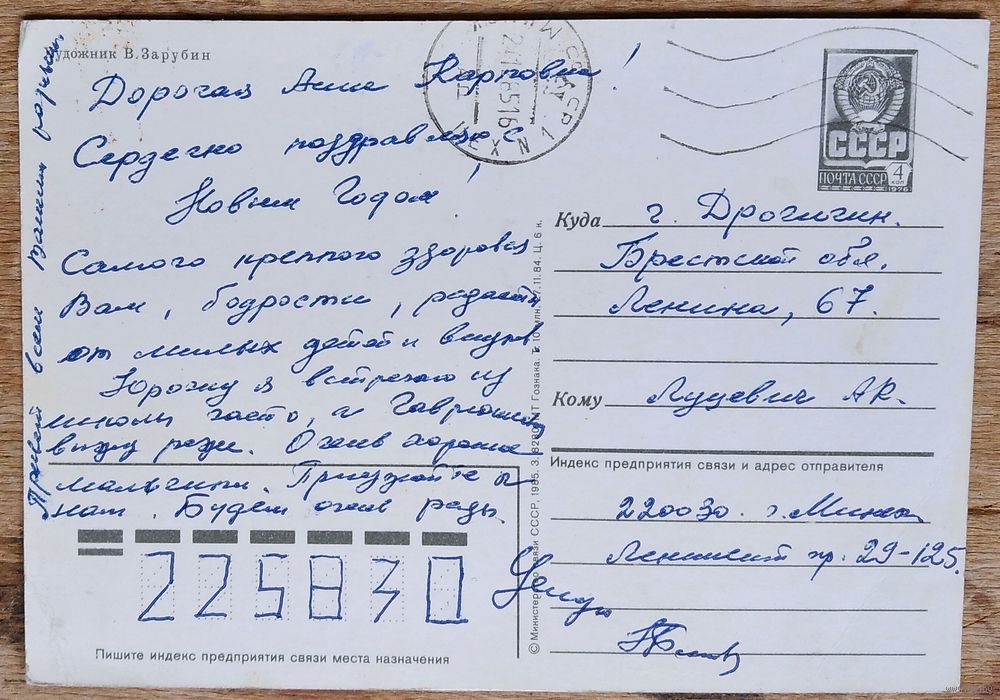 Художник В.Зарубин
Дорогая Анна Карповна!
Сердечно поздравляю с
Новым Годом!
Самого крепкого здоровья
Вам, бодрости, радости
от милых детей и внуков
Юрочку я встречаю из
школы часто, а Гаврюшку
вижу реже. Очень хорошие
мальчики. Приезжайте к
нам. Будем очень рады.
Привет всем Вашим родным.
Целую
ПОЧТА СССР
4 коп
1976
СССР
Куда г. Дрогичин.
Брестской обл.
Ленина, 67.
Кому Луцевич АК.
Индекс предприятия связи и адрес отправителя
220030. г. Минск
Ленинский пр. 29-125.
225830
Пишите индекс предприятия связи места назначения
© Министерство связи СССР, 1985. З.
Гознака.
Ц. 6 к.